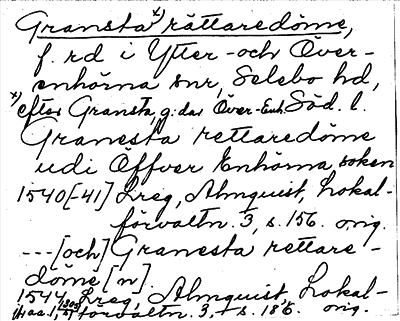 Gransta x) rättaredöme,
f. rd i Ytter- och Över-
enhörna snr, Selebo hd,
x) efter Gransta g:dar Över-Enh. Söd. l.
Granesta rettaredöme
udi Öffver Enhörna soken
1540[-41] Lreg, Almquist, Lokal-
förvaltn. 3, s. 156. orig.
---[och] Granesta rettare-
döme[n].
1544 Lreg, Almquist, Lokal-
förvaltn. 3, s. 186. orig.